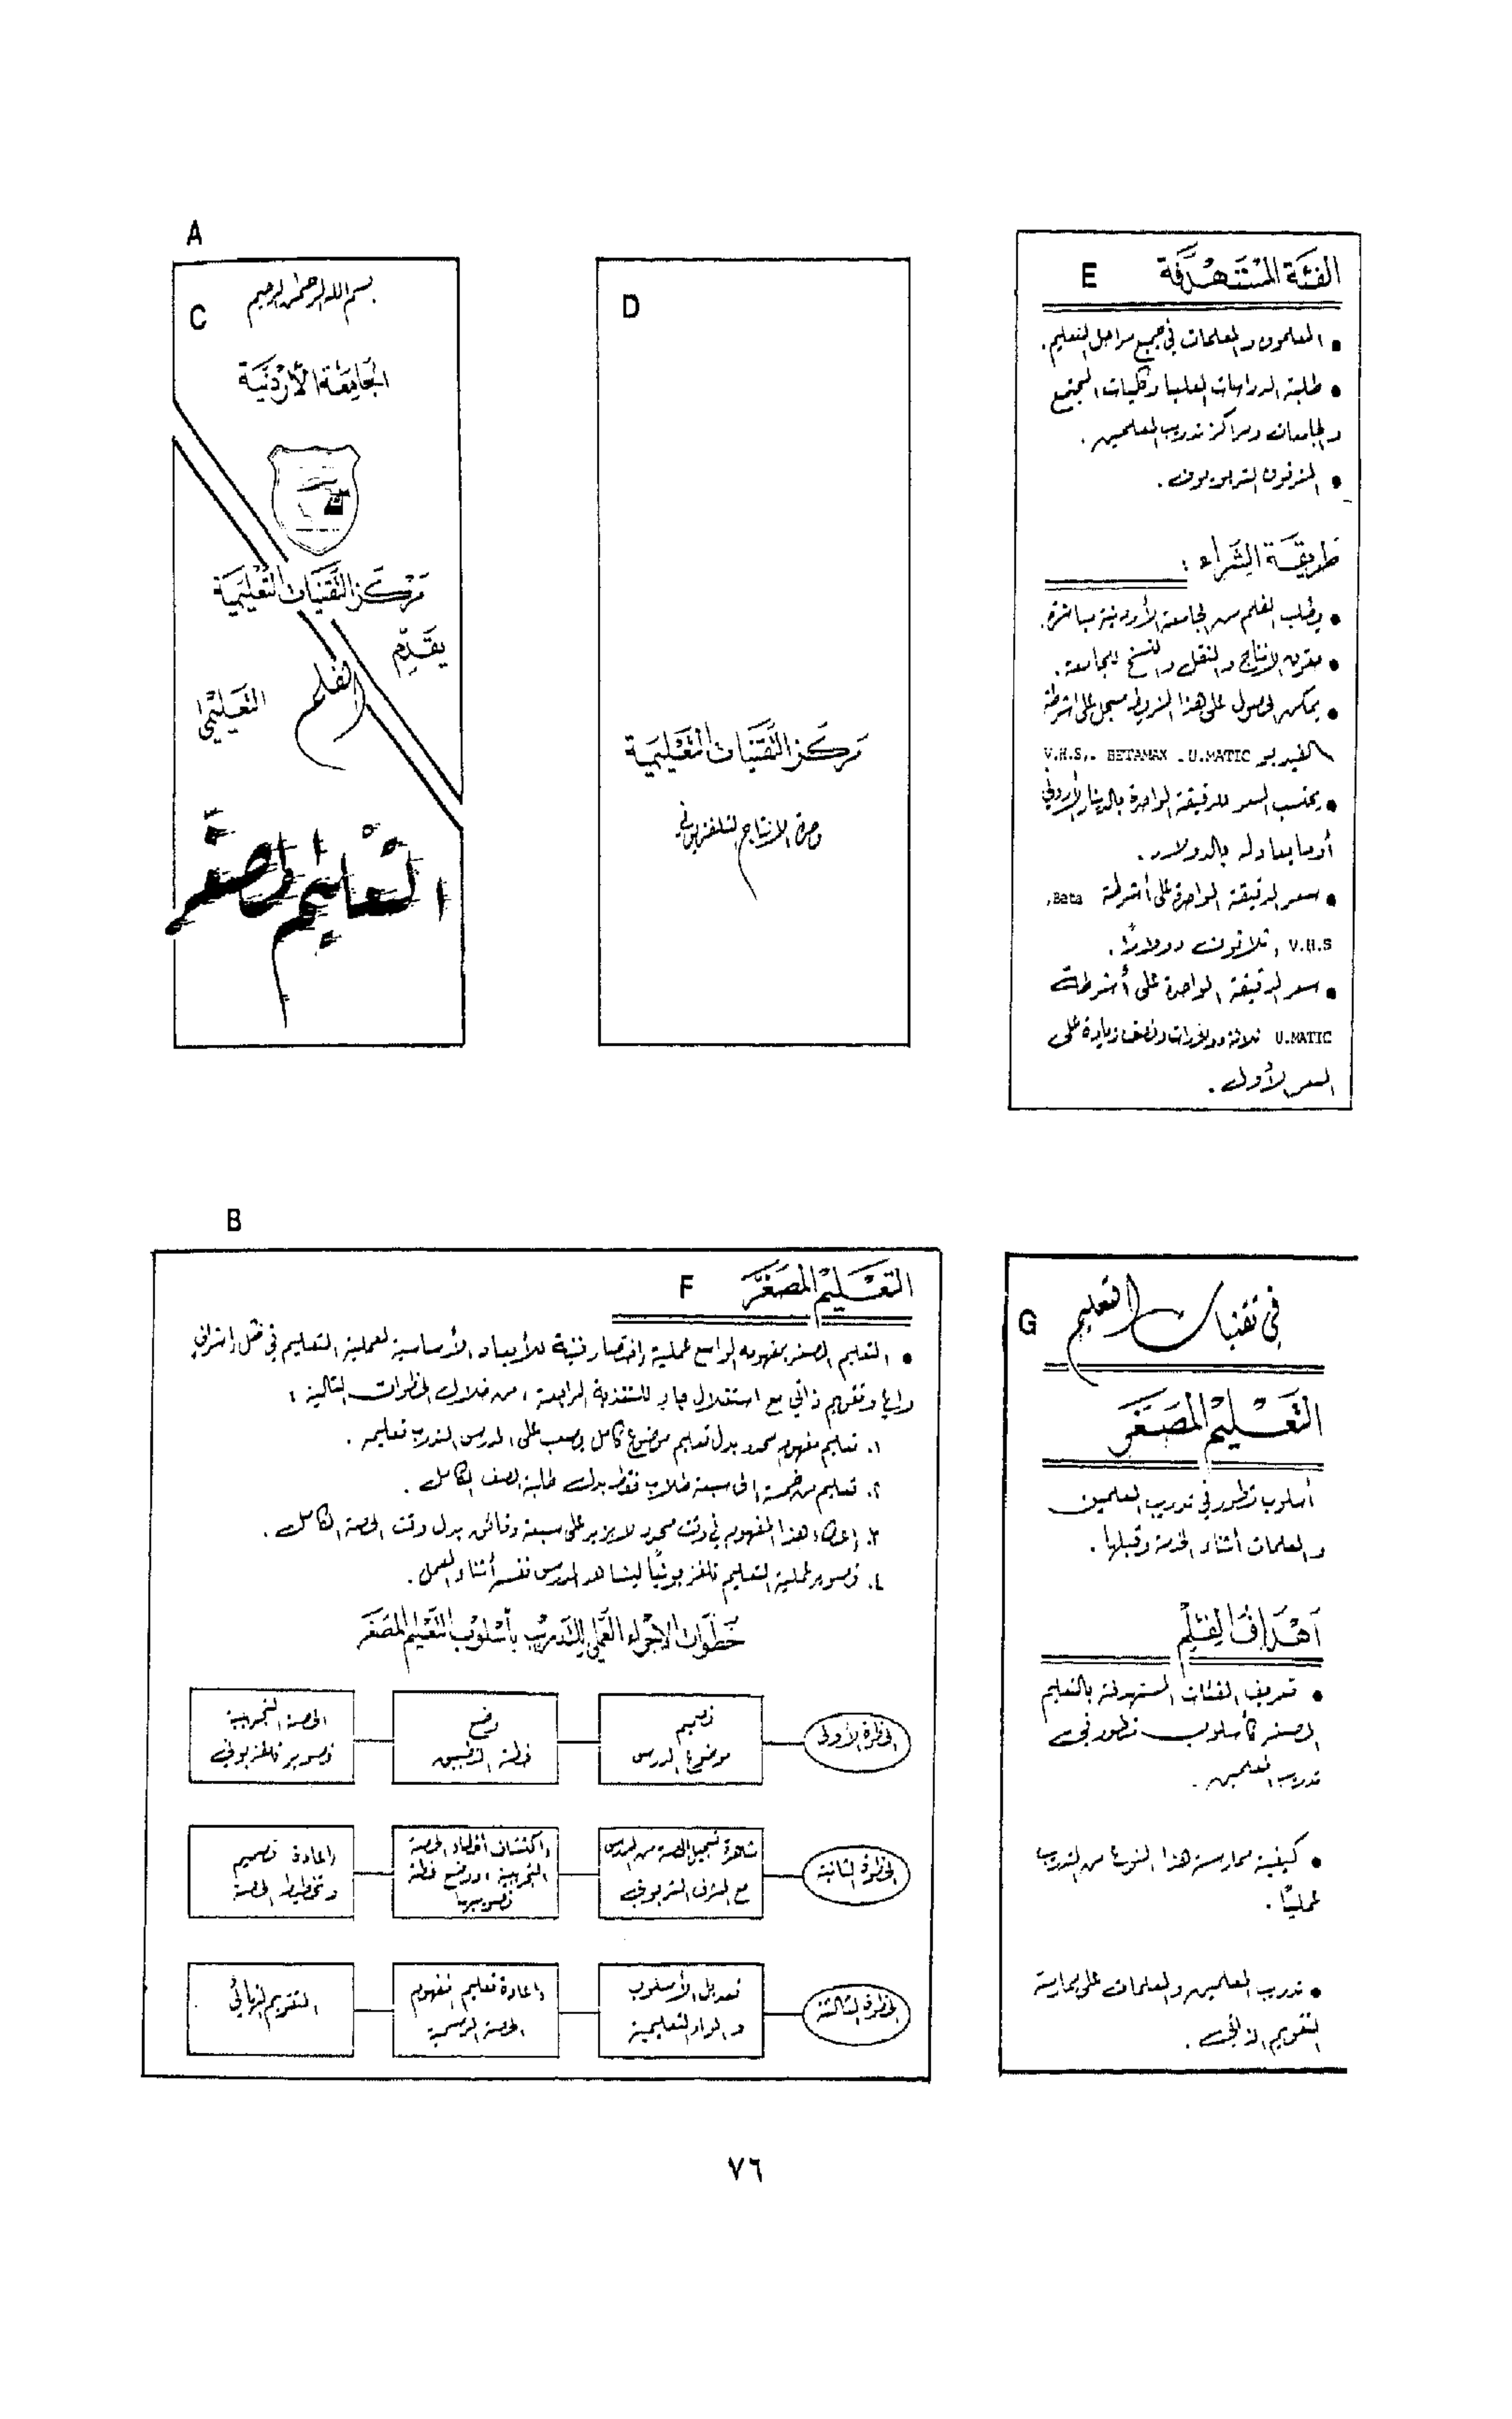 A
C
بسم الله الرحمن الرحيم
الجامعة الأردنية
مركز التقنيات التعليمية
يقدم
الفلم
التعليمي
التعليم المصغر
D
مركز التقنيات التعليمية
وحدة الانتاج التلفزيوني
E الفئة المستهدفة
• المعلمون والمعلمات في جميع مراحل التعليم.
• طلبة الدراسات العليا وكليات المجتمع
والجامعات ومراكز تدريب المعلمين.
• المشرفون التربويون.
طريقة الشراء:
• يطلب الفلم من الجامعة الأردنية مباشرة.
• حقوق الانتاج والنقل والنسخ للجامعة.
• يمكن الحصول على هذا الشريط مسجل على اشرطة
الفيديو V.H.S., BETAMAX .U.MATIC
• يحتسب السعر للدقيقة الواحدة بالدينار الأردني
أو ما يعادله بالدولار.
• سعر الدقيقة الواحدة على أشرطة Beta,
V.H.S, ثلاثون دولارًا.
• سعر الدقيقة الواحدة على أشرطة
U.MATIC ثلاثة دولارات ونصف زيادة على
السعر الأول.
B
F التعليم المصغر
• التعليم المصغر بمفهومه الواسع عملية اختصار فنية للأبعاد الأساسية لعملية التعليم في ظل إشراف
واع وتقويم ذاتي مع استغلال جاد للتغذية الراجعة، من خلال الخطوات التالية:
١. تعليم مفهوم محدد بدل تعليم موضوع كامل يصعب على المدرس المتدرب تعليمه.
٢. تعليم من خمسة الى سبعة طلاب فقط بدل طلبة الصف الكامل.
٣. إعطاء هذا المفهوم في وقت محدود لا يزيد على سبعة دقائق بدل وقت الحصة الكامل.
٤. تصوير عملية التعليم تلفزيونيًا ليشاهد المدرس نفسه أثناء العمل.
خطوات الاجراء العملي للتدريب بأسلوب التعليم المصغر
الخطوة الأولى
تصميم
موضوع الدرس
وضع
خطة التنفيذ
الحصة التجريبية
تصوير تلفزيوني
الخطوة الثانية
مشاهدة تسجيل الحصة من المدرس
مع المشرف التربوي
اكتشاف أخطاء الحصة
التجريبية، ووضع خطة
تصويبها
إعادة تصميم
وتخطيط الحصة
الخطوة الثالثة
تعديل الأسلوب
والمواد التعليمية
إعادة تعليم المفهوم
الحصة الرسمية
التقويم النهائي
G في تقنيات التعليم
التعليم المصغر
أسلوب تطور في تدريب المعلمين
والمعلمات أثناء الخدمة وقبلها.
أهداف الفلم
• تعريف الفئات المستهدفة بالتعليم
المصغر كأسلوب تطور في
تدريب المعلمين.
• كيفية ممارسة هذا النوع من التدريب
عمليًا.
• تدريب المعلمين والمعلمات على ممارسة
التقويم الذاتي.
٧٦